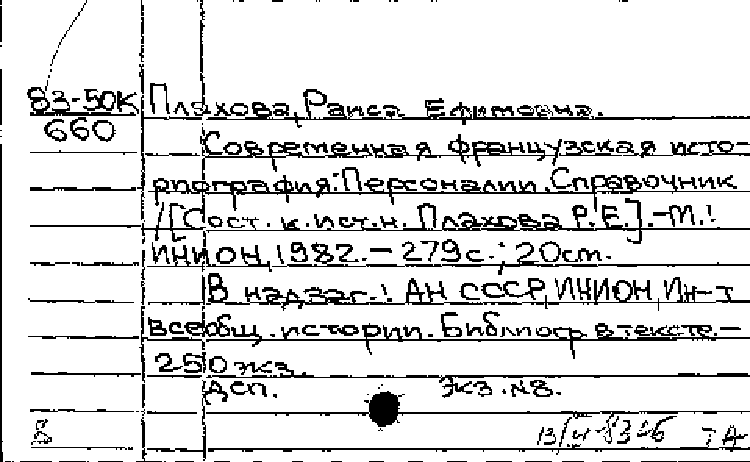 83-50К Плахова, Раиса Ефимовна.
660
Современная французская исто-
риография: Персоналии. Справочник
/[Сост. к.ист.н. Плахова Р.Е.].-М.:
ИНИОН, 1982. - 279с.; 20см.
В надзаг.: АН СССР, ИНИОН, Ин-т
всеобщ. истории. Библиогр. в тексте.-
250экз.
ДСП. Экз. №8.
8